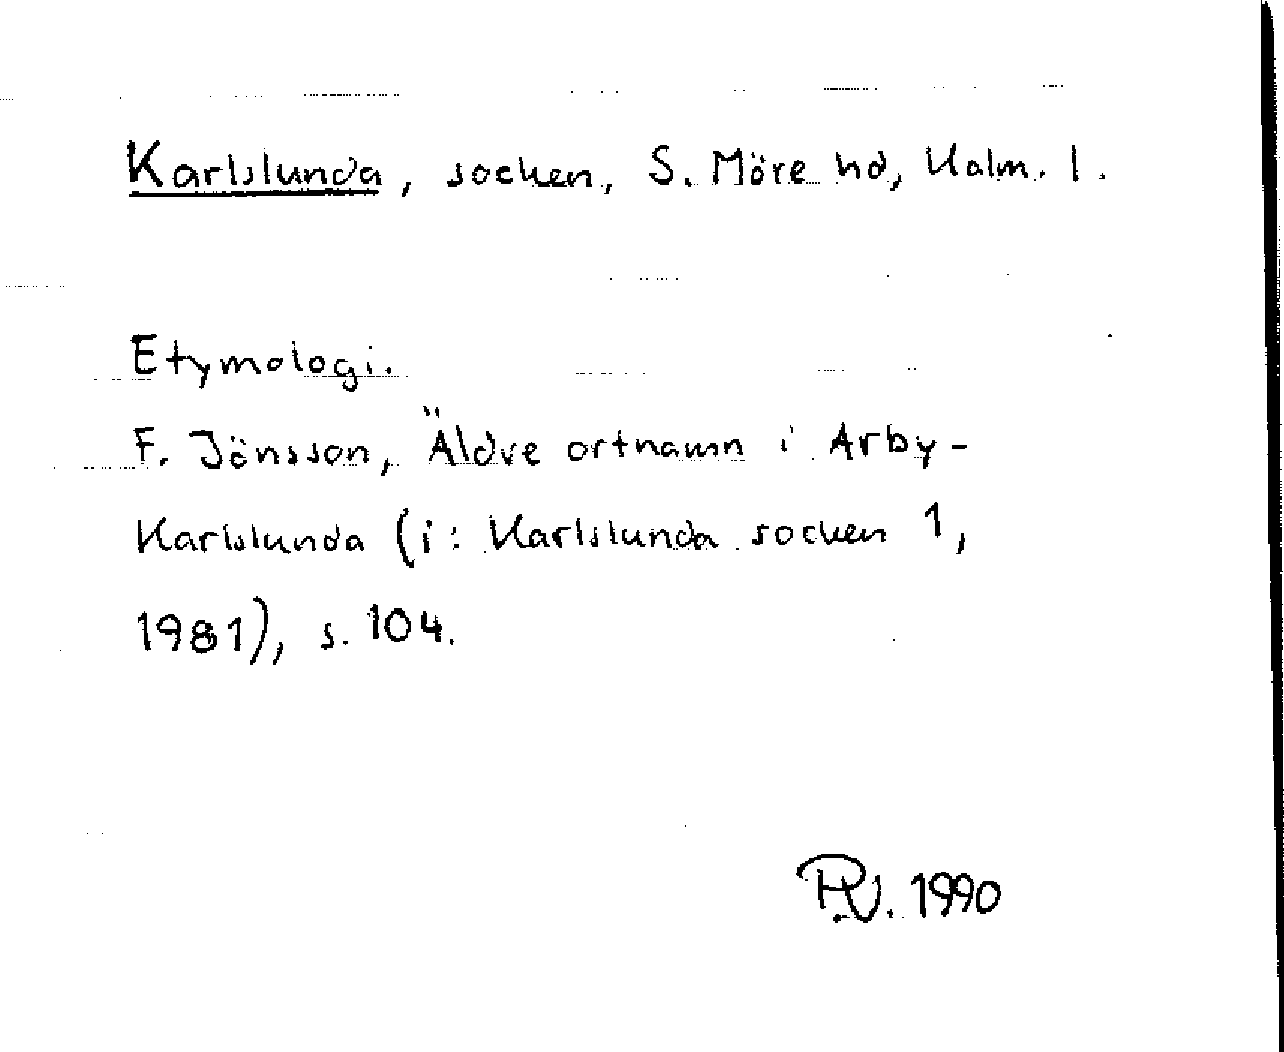 Karlslunda, socken, S. Möre hd, Kalm. l.
Etymologi.
F. Jönsson, Äldre ortnamn i Arby-
Karlslunda (i: Karlslunda socken 1,
1981), s. 104.
P.V. 1990